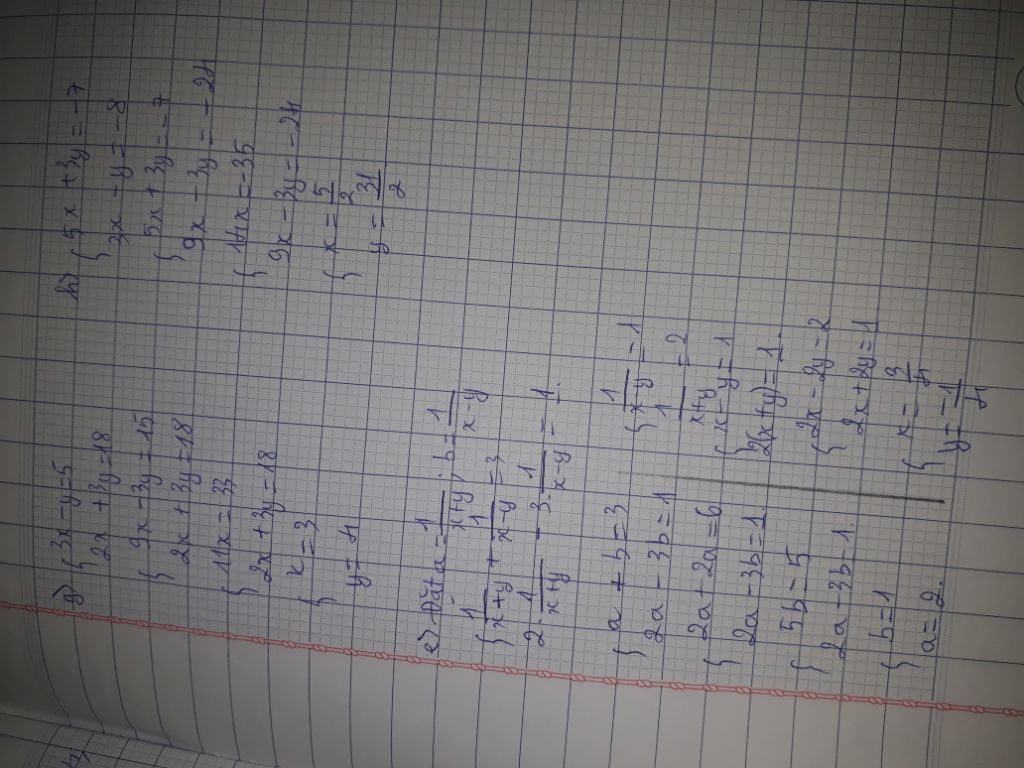 a) { 3x - y = 5
2x + 3y = 18
{ 9x - 3y = 15
2x + 3y = 18
{ 11x = 33
2x + 3y = 18
{ x = 3
y = 4
b) { 5x + 3y = -7
3x - y = -8
{ 5x + 3y = -7
9x - 3y = -24
{ 14x = -35
9x - 3y = -24
{ x = 5/2
y = 31/2
c) Đặt a = 1/(x+y) ; b = 1/(x-y)
{ 1/(x+y) + 1/(x-y) = 3
2. 1/(x+y) - 3. 1/(x-y) = 1.
{ a + b = 3
2a - 3b = 1
{ 2a + 2a = 6
2a - 3b = 1.
{ 5b = 5
2a - 3b = 1.
{ b = 1
a = 2.
{ 1/(x-y) = 1
1/(x+y) = 2
{ x - y = 1
2(x+y) = 1.
{ 2x - 2y = 2
2x + 2y = 1